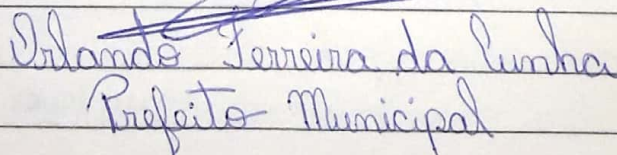 Orlando Ferreira da Cunha
Prefeito Municipal